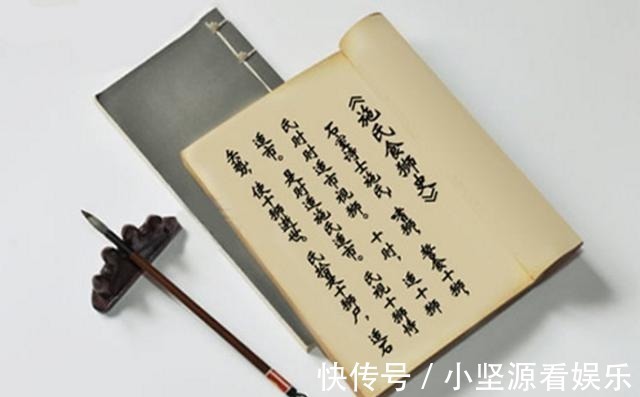 《施氏食狮史》
石室诗士施氏,嗜狮,誓食十狮,
氏时时适市视狮。十时,适十狮
适市。是时适施氏适市。氏视十狮恃
矢势,使十狮逝世。氏拾是十狮尸,适石
快传号 / 小坚源看娱乐